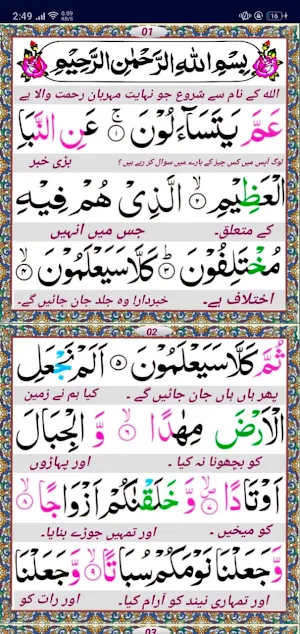 2:49
0.09 KB/S
16
01
بِسْمِ اللهِ الرَّحْمٰنِ الرَّحِيْمِ
الله کے نام سے شروع جو نہایت مہربان رحمت والا ہے
عَمَّ يَتَسَآءَلُوْنَ ۚ۝۱ عَنِ النَّبَاِ
لوگ آپس میں کس چیز کے بارے میں سوال کر رہے ہیں؟ بڑی خبر
الْعَظِيْمِ ۙ۝۲ الَّذِيْ هُمْ فِيْهِ
کے متعلق۔ جس میں انہیں
مُخْتَلِفُوْنَ ؕ۝۳ كَلَّا سَيَعْلَمُوْنَ ۙ۝۴
اختلاف ہے۔ خبردار! وہ جلد جان جائیں گے۔
02
ثُمَّ كَلَّا سَيَعْلَمُوْنَ ۝۵ اَلَمْ نَجْعَلِ
پھر ہاں ہاں جان جائیں گے۔ کیا ہم نے زمین
الْاَرْضَ مِهٰدًا ۙ۝۶ وَّ الْجِبَالَ
کو بچھونا نہ کیا۔ اور پہاڑوں
اَوْتَادًا ۪ۙ۝۷ وَّ خَلَقْنٰكُمْ اَزْوَاجًا ۙ۝۸
کو میخیں۔ اور تمہیں جوڑے بنایا۔
وَّ جَعَلْنَا نَوْمَكُمْ سُبَاتًا ۙ۝۹ وَّ جَعَلْنَا
اور تمہاری نیند کو آرام کیا۔ اور رات کو
03